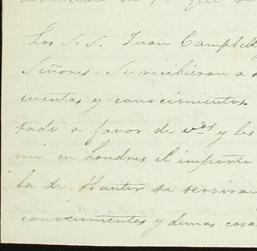 Los S.S. Juan Campbell
Señores - Se recibieron a
cuentas y conocimientos
tado a favor de vds y les
mi en Londres el importe
ta de Hunter se serviran
conocimientos y demas cosa